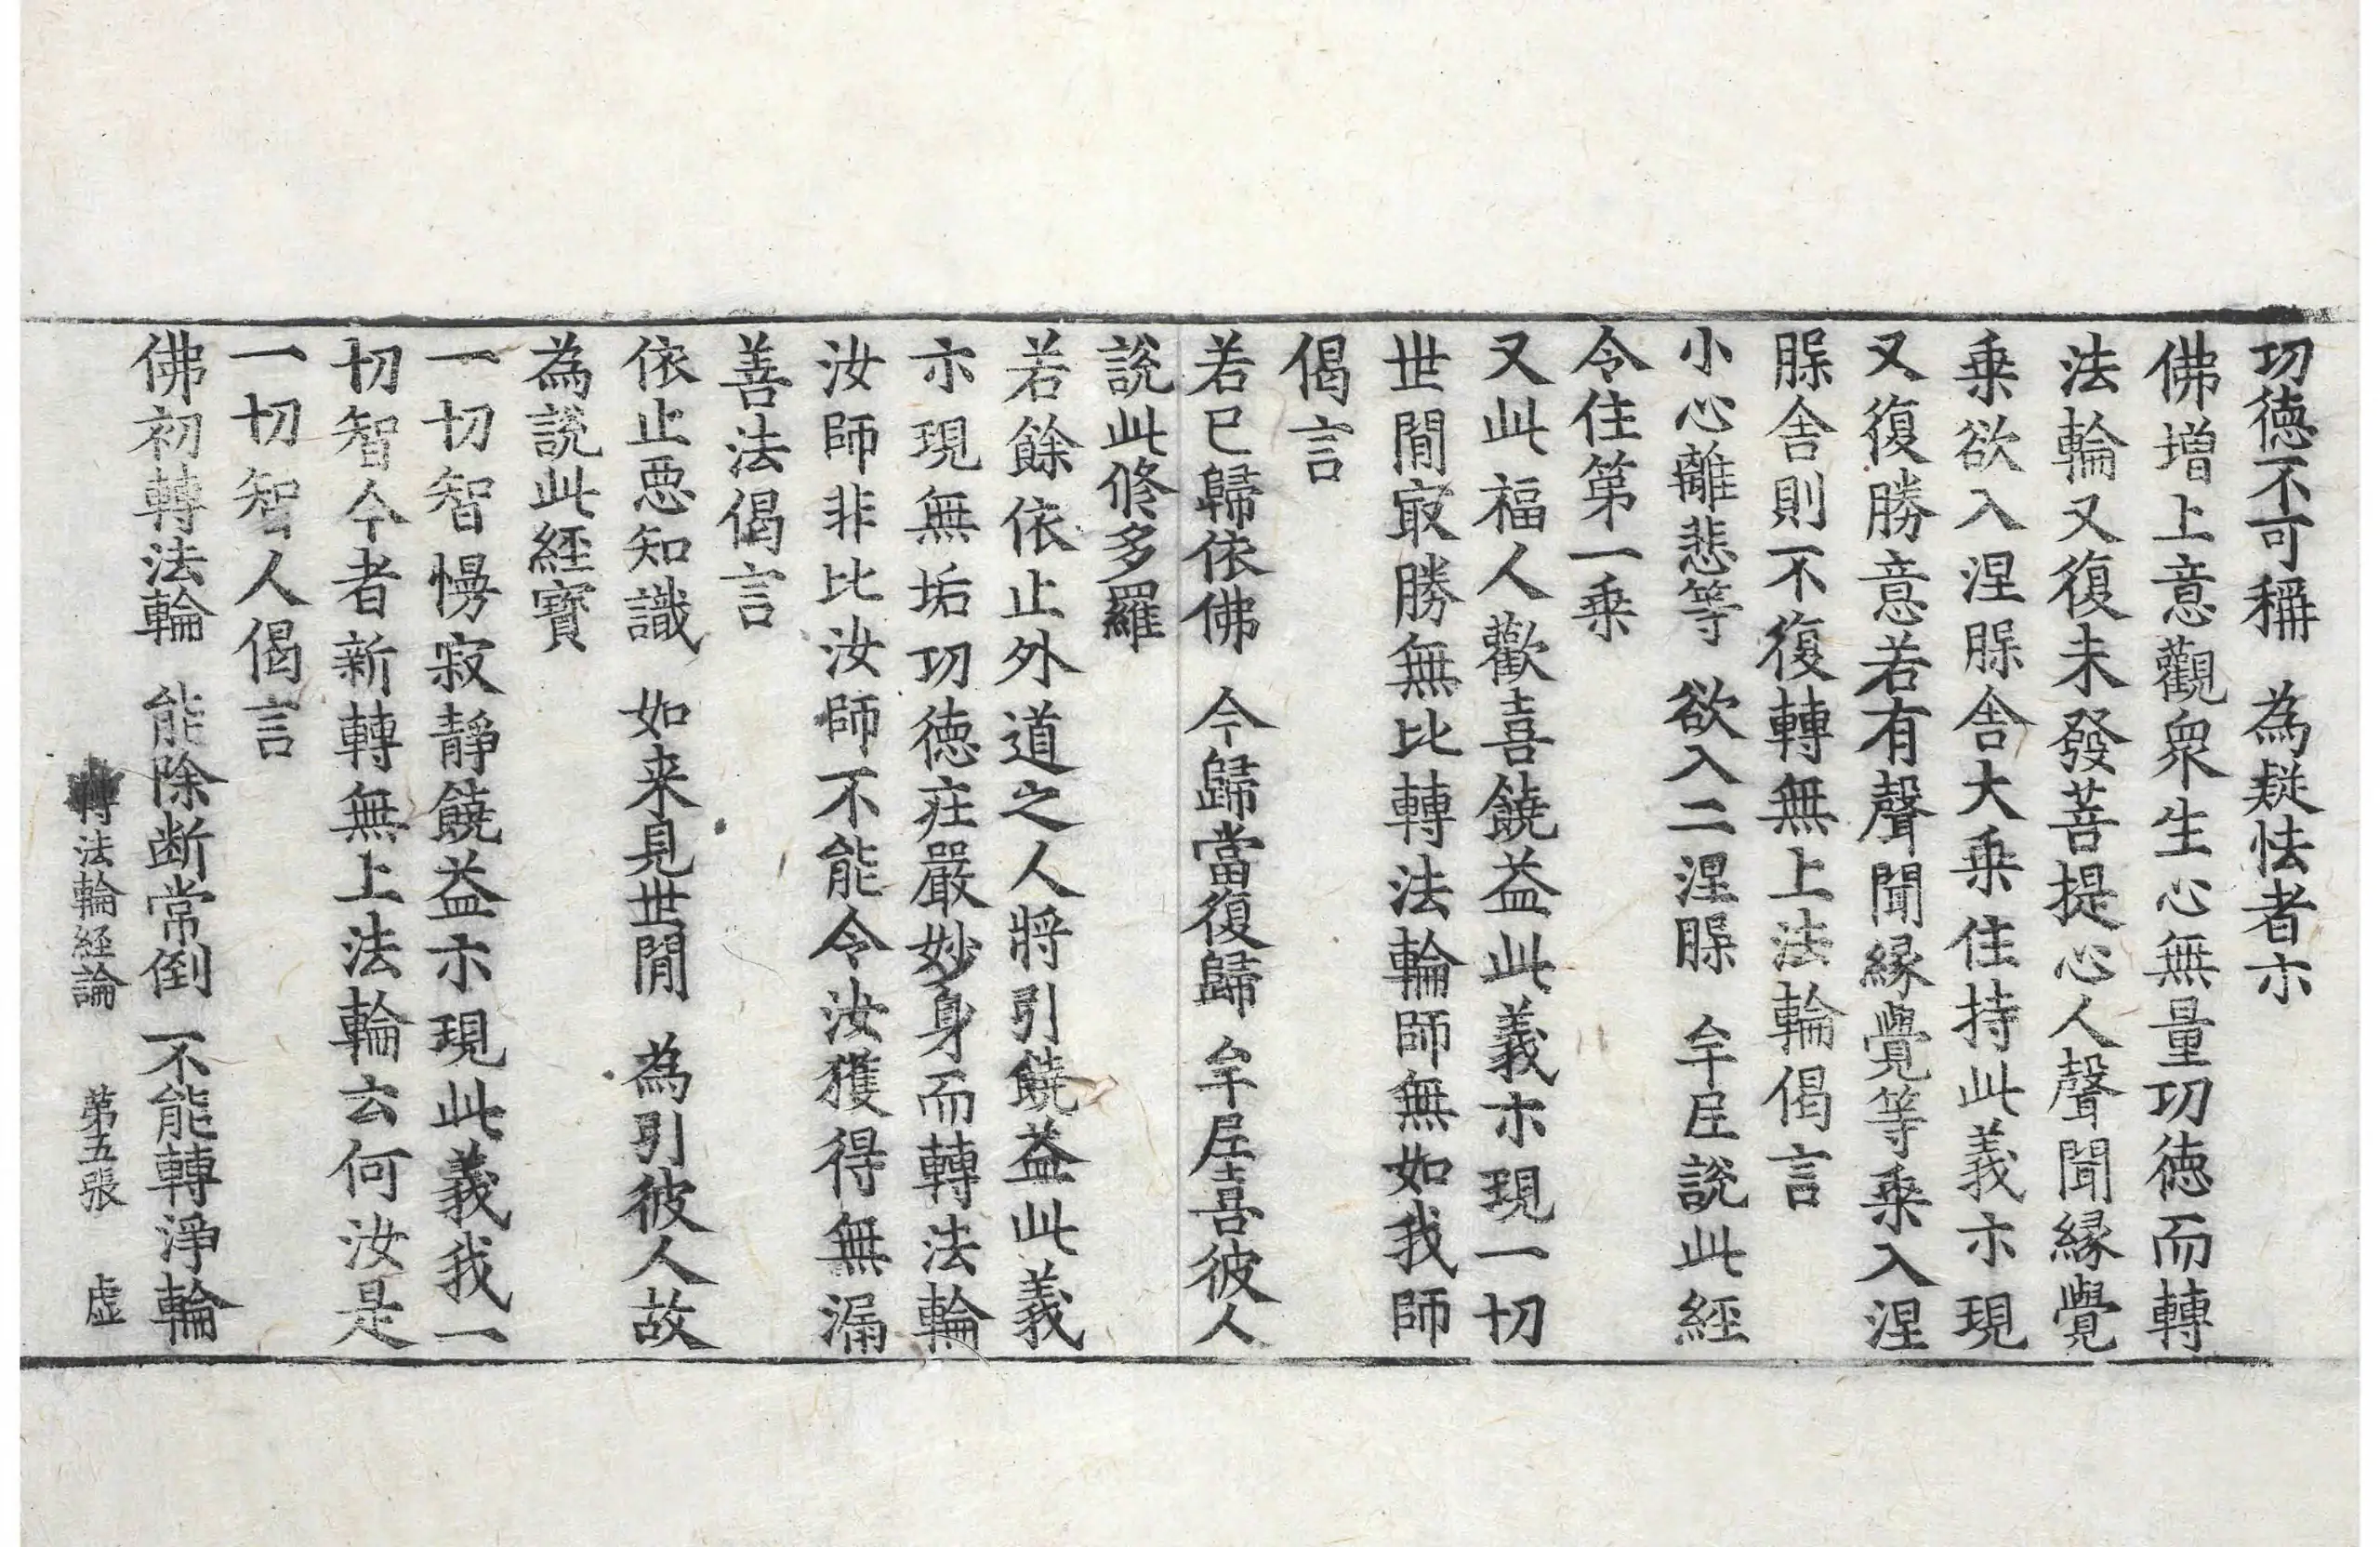 功德不可稱　為疑怯者示
佛增上意觀衆生心無量功徳而轉
法輪又復未發菩提心人聲聞縁覺
乗欲入涅槃舎大乗住持此義示現
又復勝意若有聲聞縁覺等乗入涅
槃舎則不復轉無上法輪偈言
小心離悲等　欲入二涅槃　牟尼說此經
令住第一乗
又此福人歡喜饒益此義示現一切
世閒㝡勝無比轉法輪師無如我師
偈言
若已歸依佛　今歸當復歸　牟尼喜彼人
說此修多羅
若餘依止外道之人將引饒益此義
示現無垢功德莊嚴妙身而轉法輪
汝師非比汝師不能令汝獲得無漏
善法偈言
依止惡知識　如来見世閒　為引彼人故
為說此經寶
一切智慢寂靜饒益示現此義我一
切智今者新轉無上法輪云何汝是
一切智人偈言
佛初轉法輪　能除断常倒　不能轉淨輪
轉法輪経論　第五張　虛